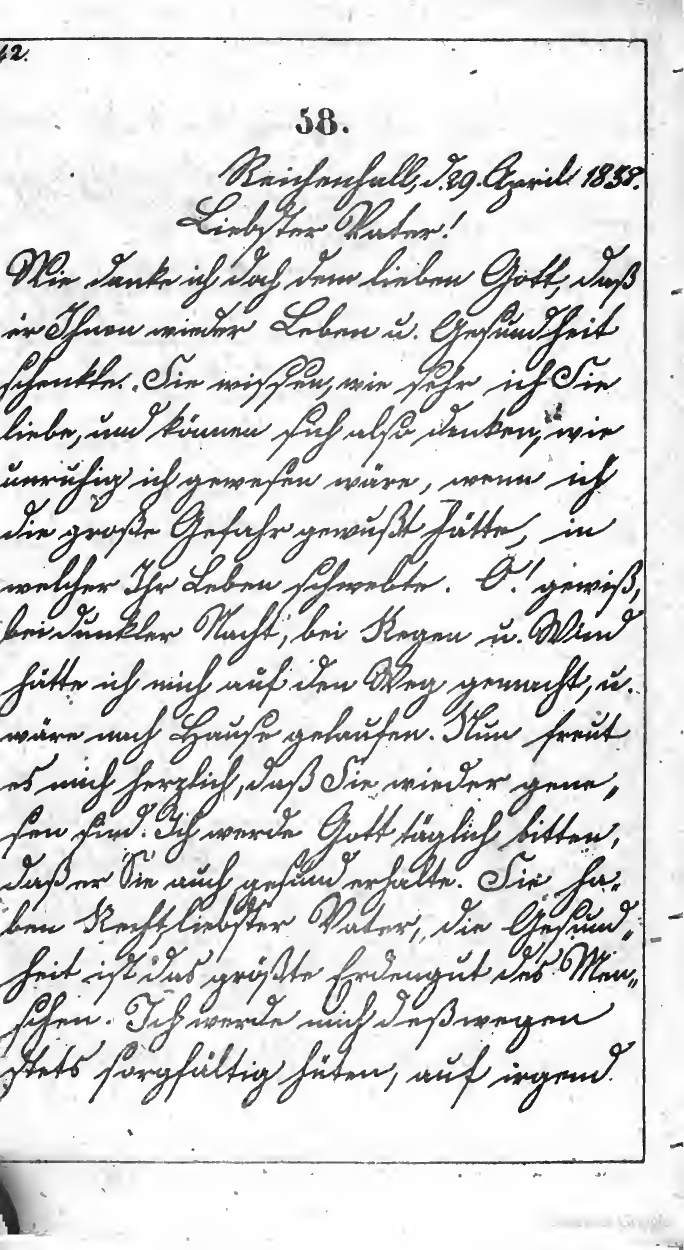 42.
58.
Reichenhall, d. 29. April 1838.
Liebster Vater!
Wie danke ich doch dem lieben Gott, daß
er Ihnen wieder Leben u. Gesundheit
schenkte. Sie wissen, wie sehr ich Sie
liebe, und können sich also denken, wie
unruhig ich gewesen wäre, wenn ich
die große Gefahr gewußt hätte, in
welcher Ihr Leben schwebte. O! gewiß,
bei dunkler Nacht, bei Regen u. Wind
hätte ich mich auf den Weg gemacht, u.
wäre nach Hause gelaufen. Nun freut
es mich herzlich, daß Sie wieder gene„
sen sind. Ich werde Gott täglich bitten,
daß er Sie auch gesund erhalte. Sie ha„
ben Recht, liebster Vater, die Gesund„
heit ist das größte Erdengut des Men„
schen. Ich werde mich deßwegen
stets sorgfältig hüten, auf irgend